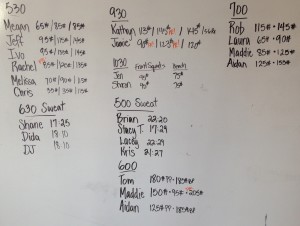 530
Megan 65#/85#/85#
Jeff 95#/115#/145#
Ivo 95#/135#/155#
Rachel 85#/120#/135#
Melissa 70#/90#/113#
Chris 95#/135#/155#
630 Sweat
Shane 17:25
Dida 18:10
DJ 18:10
930
Kathryn
Jamie
1030 Front Squats
Jen 90# 75#
Sharon 95# 75#
500 Sweat
Brian 22:20
Stacy T. 17:29
Lacey 22:29
Kris 21:27
600
Tom
Maddie 150# 95# 205#
Aidan
700
Rob 115# 145#
Laura 65# 90#
Maddie 95# 125#
Aidan 125# 155#